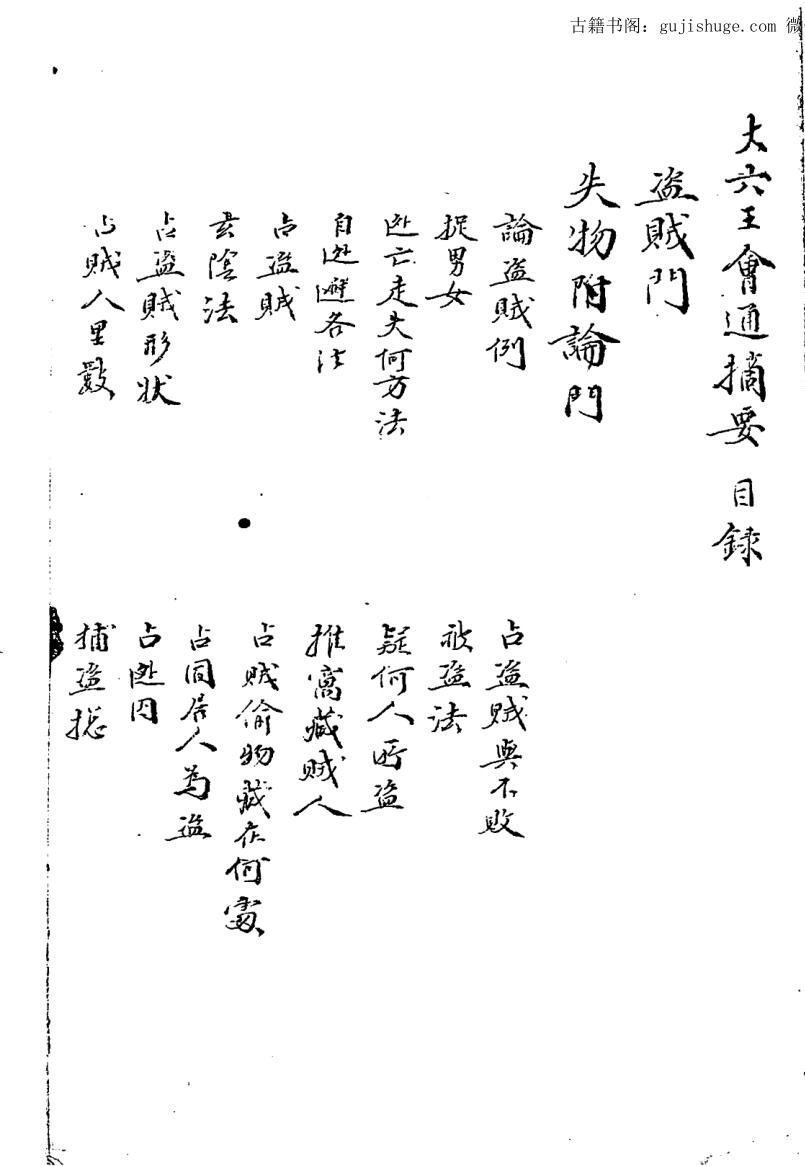 古籍书阁：gujishuge.com 微
大六壬會通摘要 目録
盗賊門
失物附論門
論盗賊例
占盗賊與不敗
捉男女
被盗法
迯亡走失何方法
疑何人所盗
自迯避各法
推窩藏賊人
占盗賊
占賊偷物藏在何處
玄陰法
占同居人為盗
占盗賊形状
占迯囚
占賊人里數
捕盗